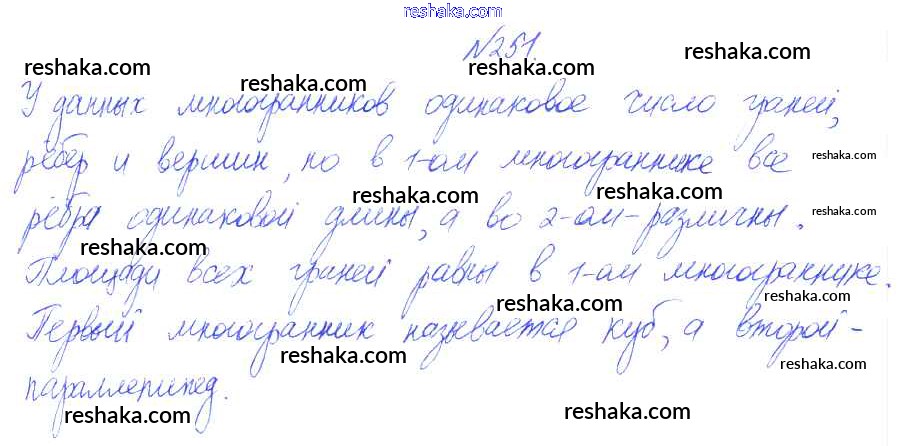 reshaka.com
№251.
reshaka.com reshaka.com reshaka.com
У данных многогранников одинаковое число граней,
рёбер и вершин, но в 1-ом многограннике все reshaka.com
reshaka.com reshaka.com
рёбра одинаковой длины, а во 2-ом - различны. reshaka.com
reshaka.com
Площади всех граней равны в 1-ом многограннике.
reshaka.com reshaka.com
Первый многогранник называется куб, а второй -
reshaka.com reshaka.com
параллерипед.
reshaka.com reshaka.com